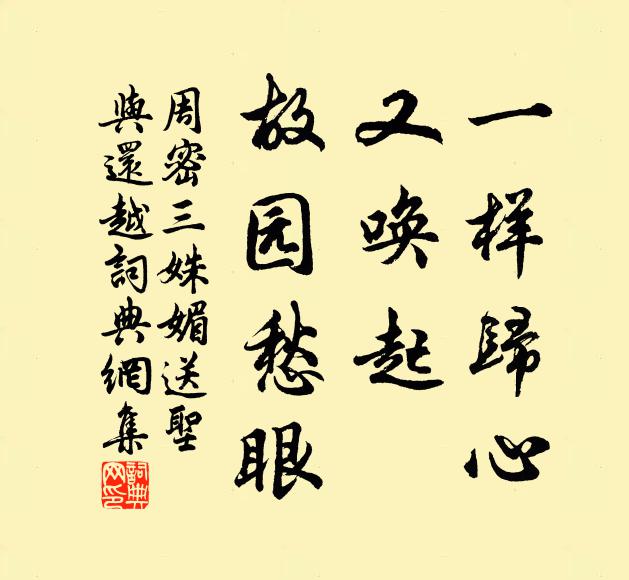 一样歸心
又唤起
故园愁眼
周密三姝媚送聖
與還越詞典網集
詞典网印